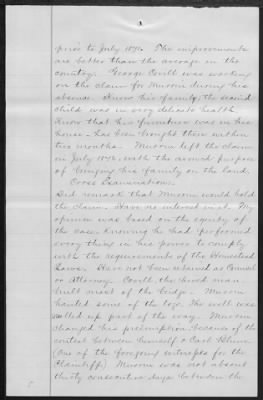 prior to July 1876. The improvements
are better than the average in the
country. George Covill was working
on the claim for Munson during his
absence. Know his family, the second
child was in very delicate health.
Know that his furniture was in his
house - has been brought there within
two months. Munson left the claim
in July 1876, with the avowed purpose
of bringing his family on the land.
Cross Examination.
Did remark that Munson would hold
the claim. Have no interest in it. My
opinion was based on the equity of
the case. Knowing he had performed
every thing in his power to comply
with the requirements of the Homestead
Laws. Have not been retained as Counsel
or Attorney. Covill, the hired man
built most of the bridge. Munson
hauled some of the logs. The well was
walled up part of the way. Munson
changed his preemption because of the
contest between himself & Carl Blum
(One of the foregoing witnesses for the
Plaintiff) Munson was not absent
thirty consecutive days between the